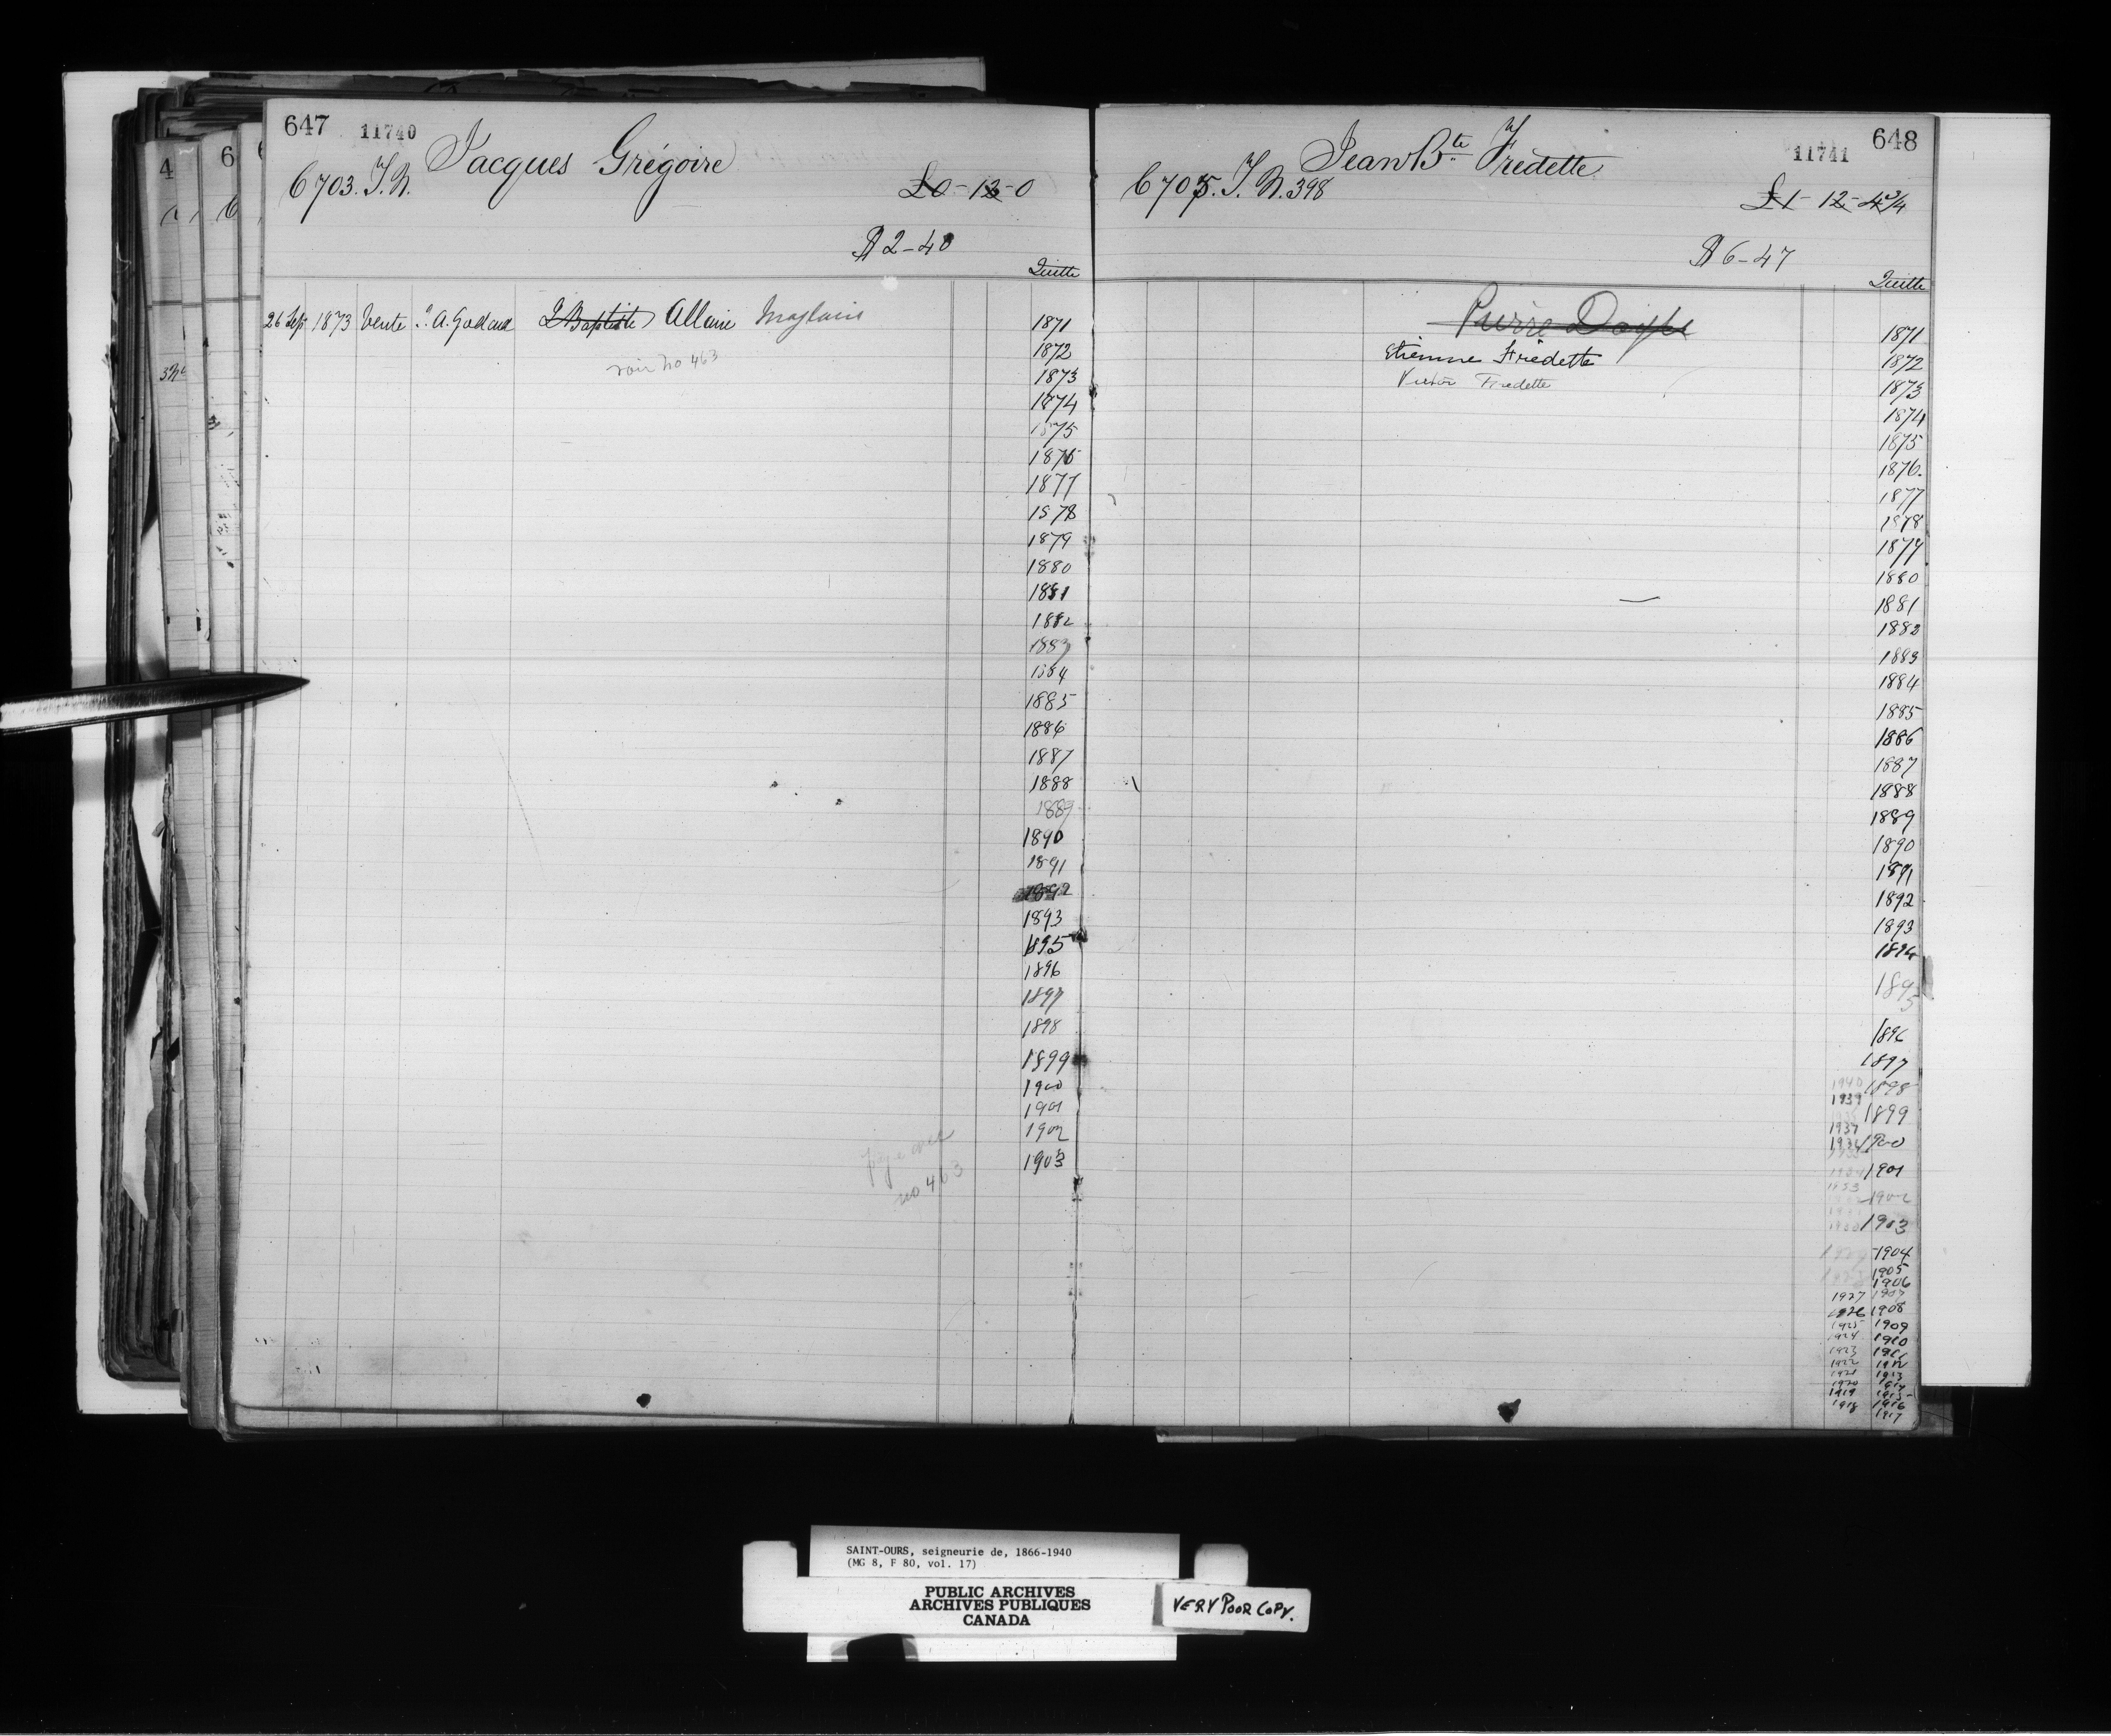 647 11740 Jacques Grégoire
6703. T. N.
£0-12-0
$2-40
Quitte
26 Sept 1873 Vente J. A. Gadoua J Baptiste Allaire Magloire
voir no 463
1871
1872
1873
1874
1875
1876
1877
1878
1879
1880
1881
1882
1883
1884
1885
1886
1887
1888
1889
1890
1891
1892
1893
1895
1896
1897
1898
1899
1900
1901
1902
1903
no 463
Jean Bte Fredette 11741 648
6705. T. N. 398
£1-12-4¾
$6-47
Quitte
Pierre
Etienne Fredette
Victor Fredette
1871
1872
1873
1874
1875
1876.
1877
1878
1879
1880
1881
1882
1883
1884
1885
1886
1887
1888
1889
1890
1891
1892
1893
1894
1895
1896
1897
1940 1898
1939 1899
1937
1936 1900
1934 1901
1933
1902
1930 1903
1904
1905
1906
1927 1907
1926 1908
1925 1909
1924 1910
1923 1911
1922 1912
1921 1913
1920 1914
1919 1915
1918 1916
1917
SAINT-OURS, seigneurie de, 1866-1940
(MG 8, F 80, vol. 17)
PUBLIC ARCHIVES
ARCHIVES PUBLIQUES
CANADA
VERY POOR COPY.